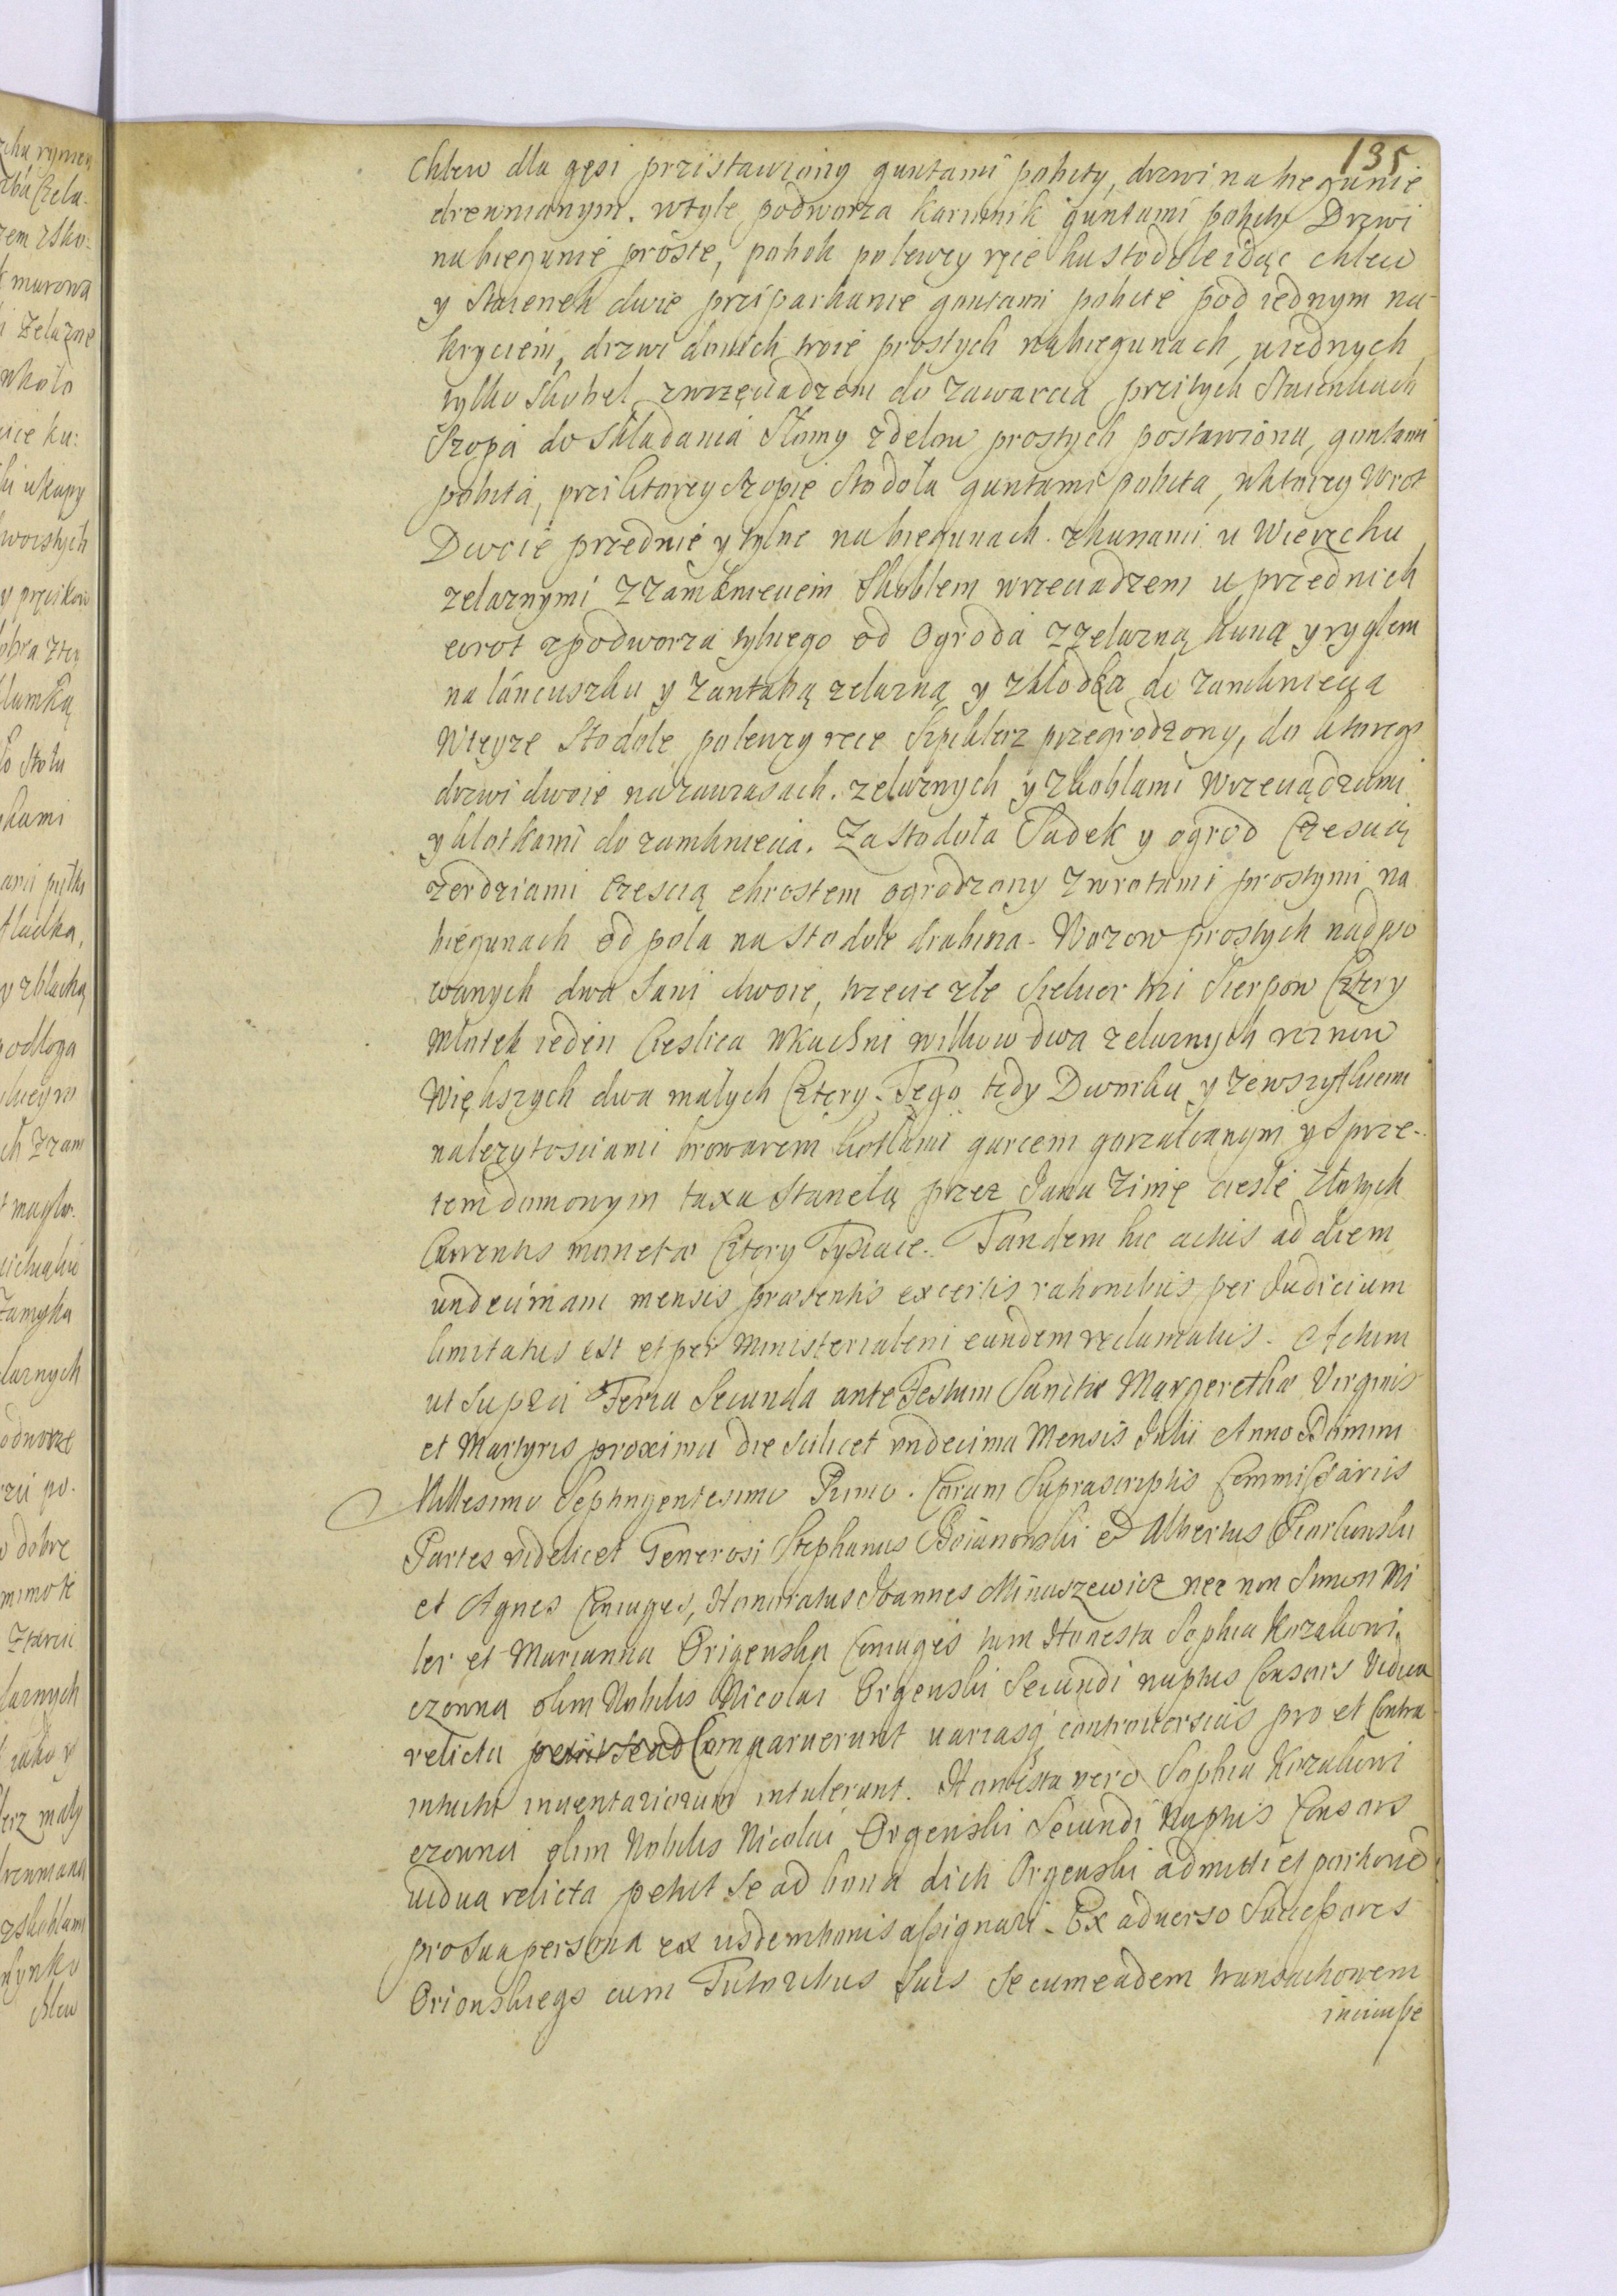 135
Chlew dla gęsi przistawiony guntami pobity, drzwi na biegunie
drewnianym. wtyle podworza karmnik guntami pobity Drzwi
na biegunie proste, pobok polewey ręce ku stodole idąc chlew
y Staienek dwie przi parkanie guntami pobite pod iednym na-
kryciem, drzwi do nich troie prostych na biegunach, u iednych
tylko skobel zwrzeciadzem do zawarcia przi tych Staienkach
Szopa do składania Słomy zdelow prostych postawiona, guntami
pobita, przi ktorey Szopie Stodoła guntami pobita, w ktorey Wrot
Dwoie przednie y tylne na biegunach zkunami u Wierzchu
zelaznymi z zamknieciem Skoblem wrzeciadzem u przednich
wrot z podworza tylnego od Ogroda z zelazną kuną y ryglem
na łáncuszku y zantabą zelazną y zklodką do zamkniecia
Wteyze Stodole polewey rece Szpiklerz przegrodzony, do ktorego
drzwi dwoie na zawiasach zelaznych y zkoblami Wrzeciądzami
y klotkami do zamkniecia. Za stodoła Sadek y ogrod Czescią
zerdziami Czescią chrostem ogrodzony z wrotami prostymi na
biegunach od pola na stodole drabina. Wozow prostych nadpso
wanych dwa Sani dwoie, trzecie złe Siekier trzi Sierpow Cztery
Młotek ieden Cieslica w kuchni wilkow dwa zelaznych
Większych dwa małych Cztery. Tego tedy Dworku y ze wszytkiemi
nalezytosciami browarem kotlami garcem gorzalcanym y Sprze-
tem domowym taxa Staneła przez Jana Zimę ciesle złotych
Currentis monetæ Cztery Tysiące. Tandem hic actus ad diem
undecimam mensis præsentis ex certis rationibus per Judicium
limitatus est et per Ministerialem eundem reclamatus. Actum
ut Supra Feria Secunda ante Festum Sanctæ Margerethæ Virginis
et Martyris proxima die Scilicet undecima Mensis Julii Anno Domini
Millesimo Septingentesimo Primo. Coram Suprascriptis Commissariis
Partes videlicet Generosi Stephanus Boianowski et Albertus
et Agnes Coniuges, Honoratus Joannes Minuszewicz nec non Simon Mi
ler et Marianna Origenska Coniuges tum Honesta Sophia Kozakowi
czowna olim Nobilis Nicolai Orgenski Secundi nuptus Consors Vidua
relicta petiit se ad Comparuerunt variasq controversias pro et Contra
intuitu inventariorum intulerunt. Honesta vero Sophia Kozakowi
czowna olim Nobilis Nicolai Orgenski Secundi Nuptus Consors
vidua relicta petiit Se ad bona dicti Orgenski admitti et portione
pro Sua persona ex iisdem bonis assignari. Ex adverso Successores
Orionskiego cum Tutoribus Suis Se cum eadem transactionem
iniuisse